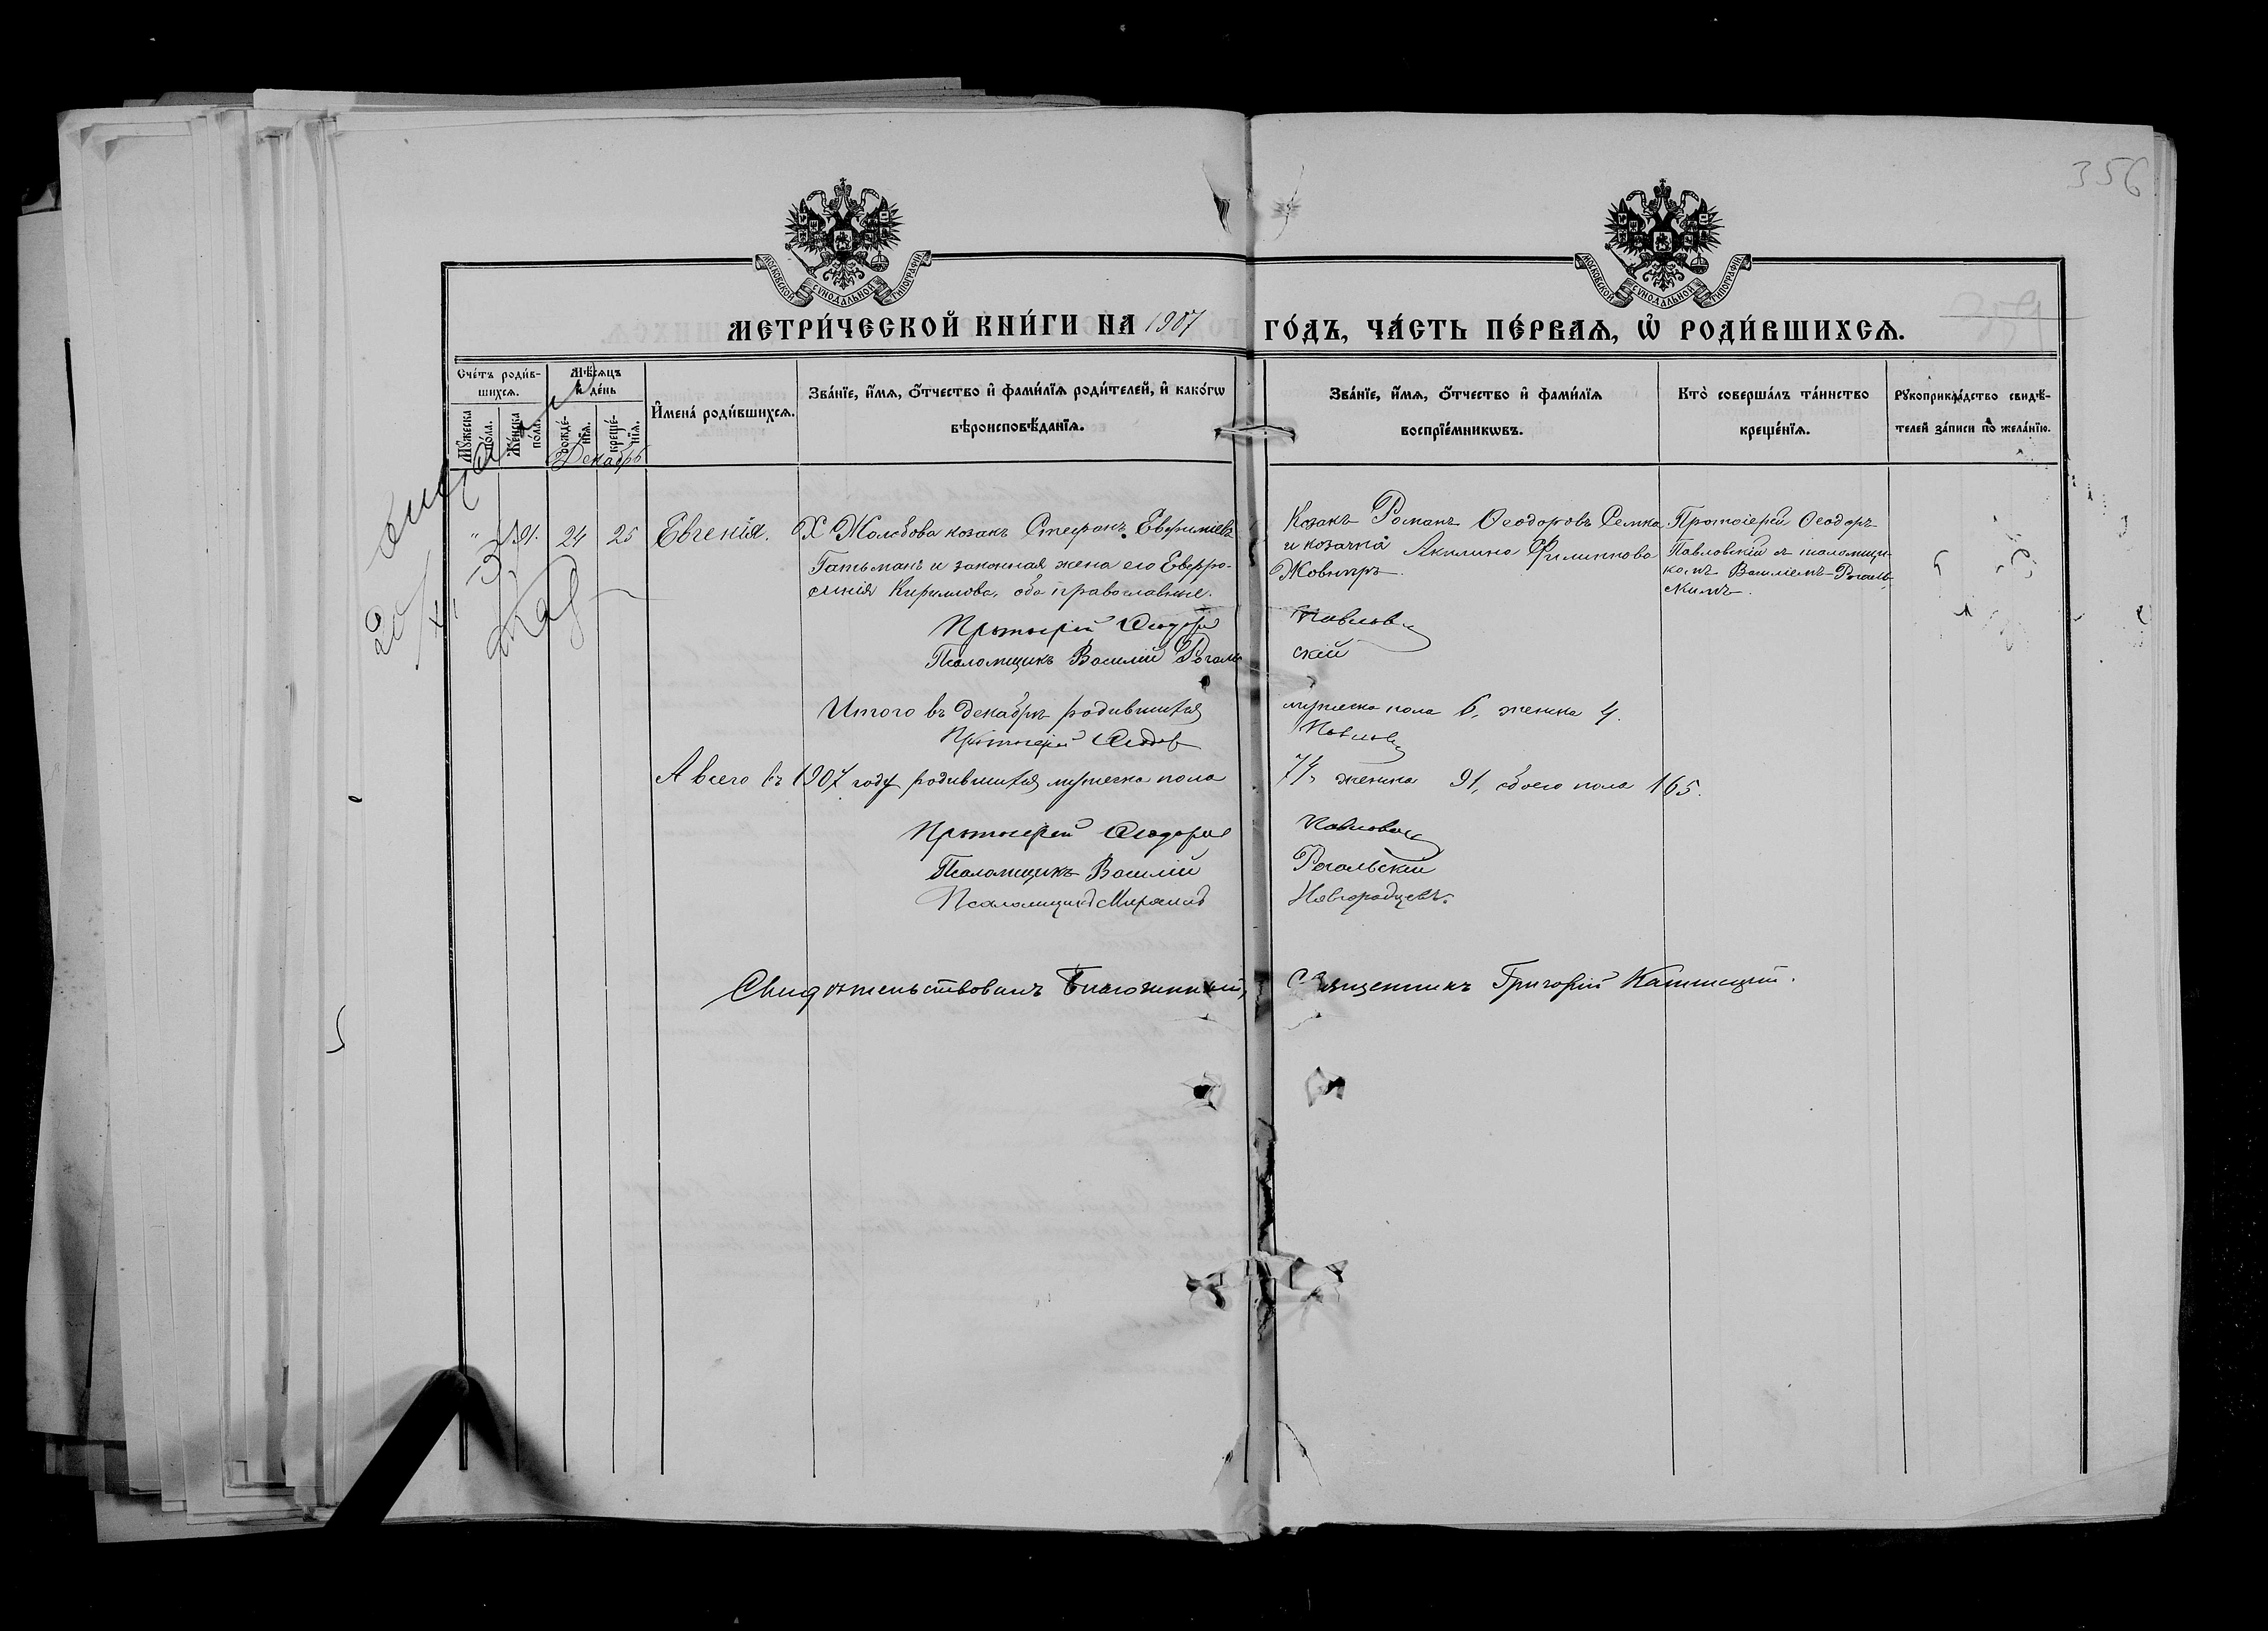 356
МОСКОВСКОЙ СѴНОДАЛЬНОЙ ТИПОГРАФІИ
МОСКОВСКОЙ СѴНОДАЛЬНОЙ ТИПОГРАФІИ
МЕТРИ́ЧЕСКОЙ КНИ́ГИ НА 1907 ГО́ДЪ, ЧА́СТЬ ПЕ́РВАѦ, Ѡ҆ РОДИ́ВШИХСѦ.
Сче́тъ роди́в-
шихсѧ.
Мꙋжеска по́ла.
Же́нска по́ла.
Мѣ́сѧцъ
и҆ де́нь
рожде́-
нїѧ.
креще́-
нїѧ.
Декабрь
И҆мена̀ роди́вшихсѧ.
Зва́нїе, и҆́мѧ, ѻ҆́тчество и҆ фами́лїѧ роди́телей, и҆ како́гѡ
вѣроисповѣ́данїѧ.
Зва́нїе, и҆́мѧ, ѻ҆́тчество и҆ фами́лїѧ
воспрїе́мникѡвъ.
Кто̀ соверша́лъ та́инство
креще́нїѧ.
Рꙋкоприкла́дство свидѣ́-
телей за́писи по жела́нїю.
" 91. 24 25 Евгенія.
Х Жолобова козакъ Стефанъ Евфиміевъ
Гатьманъ и законная жена его Евфро-
синія Кириллова, оба православные.
Козакъ Романъ Ѳеодоровъ Семка
и козачка Акилина Филиппова
Жовниръ.
Протоіерей Ѳеодоръ
Павловскій съ псаломщи-
комъ Василіемъ Рогаль-
скимъ.
Протоіерей Ѳеодоръ Павлов
Псаломщикъ Василій Рогаль скій
Итого въ декабрѣ родившихся мужеска пола 6, женска 4.
Протоіерей Ѳеодор Павлов
А всего въ 1907 году родившихся мужеска пола 74, женска 91, обоего пола 165.
Протоіерей Ѳеодоръ Павловск
Псаломщикъ Василій Рогальскій
Псаломщикъ Михаилъ Новгородцевъ.
Свидѣтельствовалъ Благочинный, Священникъ Григорій